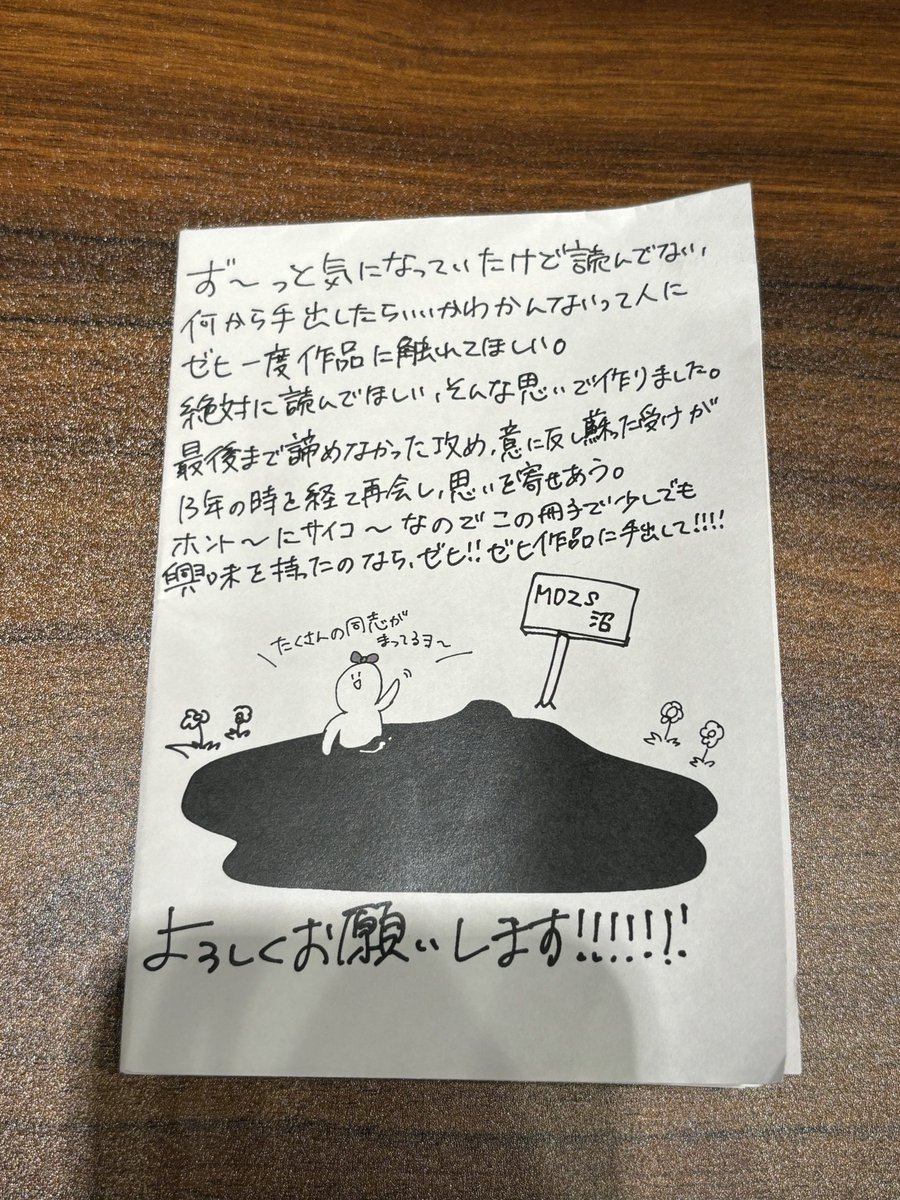 ず〜っと気になっていたけど読んでない、
何から手出したらいいかわかんないって人に
ゼヒ一度作品に触れてほしい。
絶対に読んでほしい、そんな思いで作りました。
最後まで諦めなかった攻め、意に反し蘇った受けが
13年の時を経て再会し、思いを寄せあう。
ホント〜にサイコ〜なのでこの冊子で少しでも
興味を持ったのなら、ゼヒ!!ゼヒ作品に手出して!!!!
MDZS
沼
たくさんの同志が
まってるヨ〜
よろしくお願いします!!!!!!